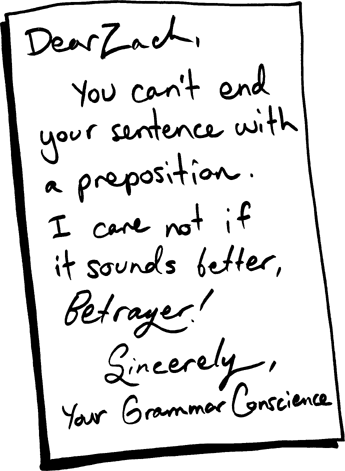 Dear Zach,
You can't end
your sentence with
a preposition.
I care not if
it sounds better,
Betrayer!
Sincerely,
Your Grammar Conscience